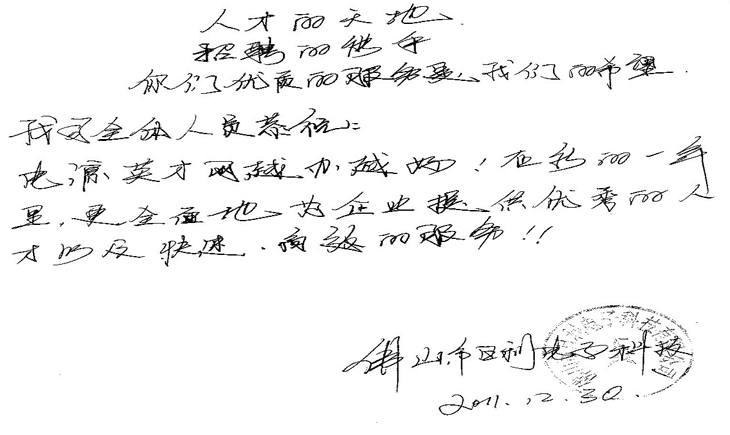 人才的天地
招聘的能手
你们优质的服务是我们的希望
我司全体人员恭祝:
电源英才网越办越好!在新的一年
里,更全面地为企业提供优秀的人
才以及快速、高效的服务!!
佛山市区利达电子科技
电子科技有限公司
2011.12.30.